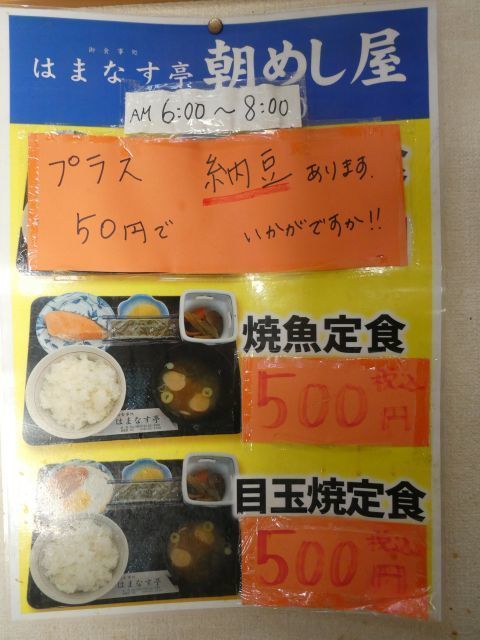 御食事処
はまなす亭 朝めし屋
AM 6:00〜8:00
プラス 納豆 あります.
50円で いかがですか!!
焼魚定食
500円 税込
はまなす亭
目玉焼定食
500円 税込
はまなす亭